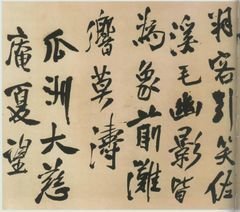 將客引笑佐
溪毛幽影皆
為象前灘
響莫濤
瓜洲大慈
庵夏望